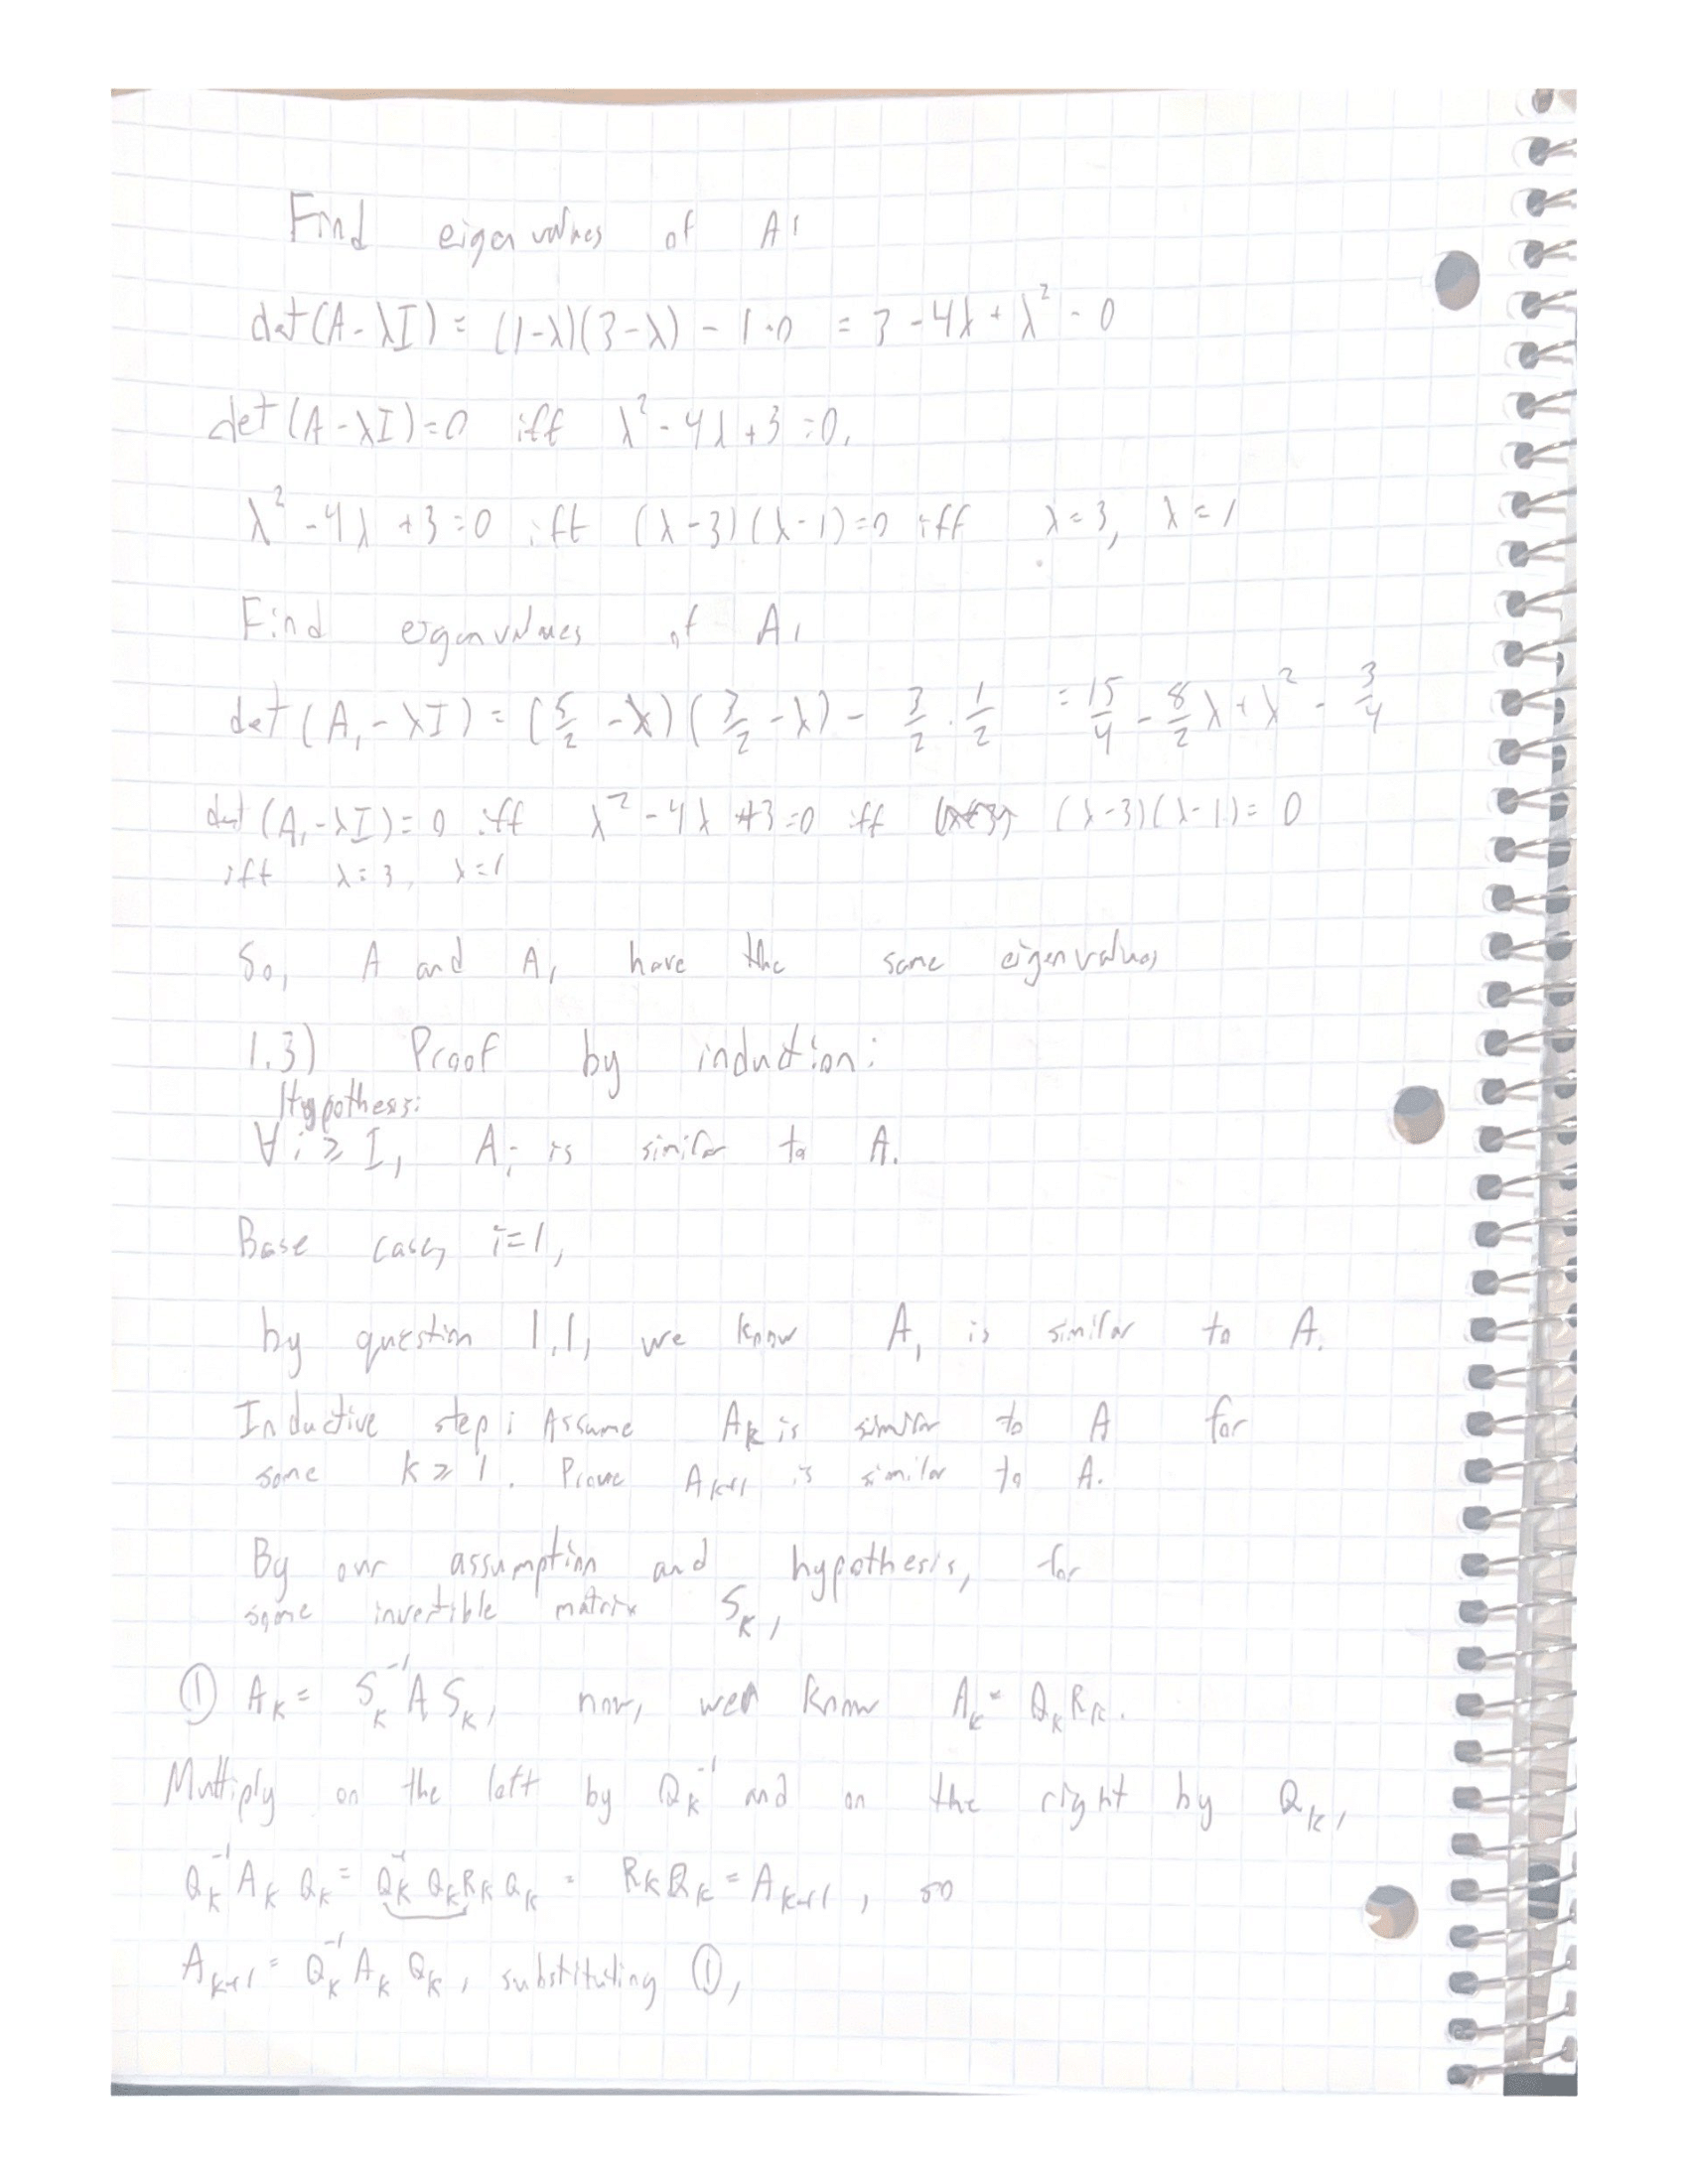 Find eigenvalues of A:
det(A-λI) = (1-λ)(3-λ) - 1·0 = 3-4λ+λ² - 0
det(A-λI)=0 iff λ²-4λ+3=0.
λ²-4λ+3=0 iff (λ-3)(λ-1)=0 iff λ=3, λ=1
Find eigenvalues of A₁
det(A₁-λI) = (5/2 -λ)(3/2 -λ) - 3/2 · 1/2 = 15/4 - 8/2 λ + λ² - 3/4
det(A₁-λI)=0 iff λ²-4λ+3=0 iff (λ-3)(λ-1)=0
iff λ=3, λ=1
So, A and A₁ have the same eigenvalues
1.3) Proof by induction:
Hypothesis:
∀ i ≥ 1, Aᵢ is similar to A.
Base case, i=1,
by question 1.1, we know A₁ is similar to A.
Inductive step: Assume Aₖ is similar to A for
some k ≥ 1. Prove Aₖ₊₁ is similar to A.
By our assumption and hypothesis, for
some invertible matrix Sₖ,
① Aₖ = Sₖ⁻¹ A Sₖ, now, we know Aₖ = QₖRₖ.
Multiply on the left by Qₖ⁻¹ and on the right by Qₖ,
Qₖ⁻¹ Aₖ Qₖ = Qₖ⁻¹ Qₖ Rₖ Qₖ = Rₖ Qₖ = Aₖ₊₁, so
Aₖ₊₁ = Qₖ⁻¹ Aₖ Qₖ, substituting ①,